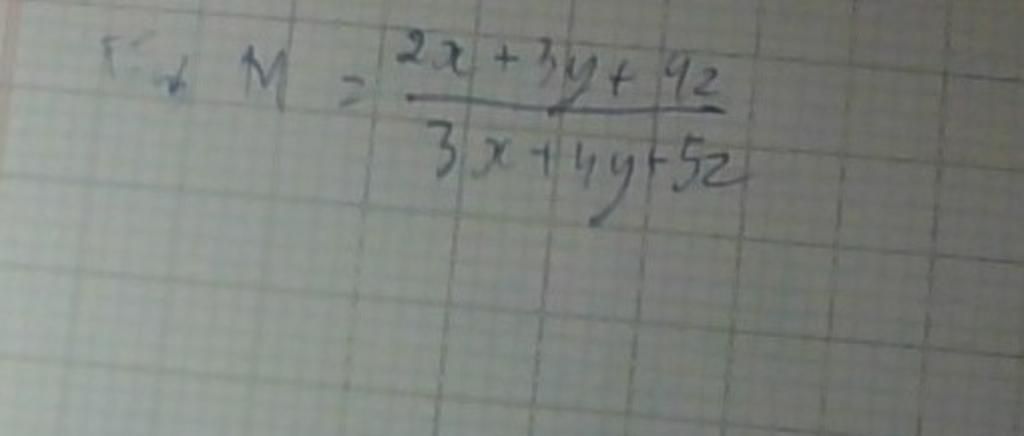 M = \frac{2x + 3y + 4z}{3x + 4y + 5z}